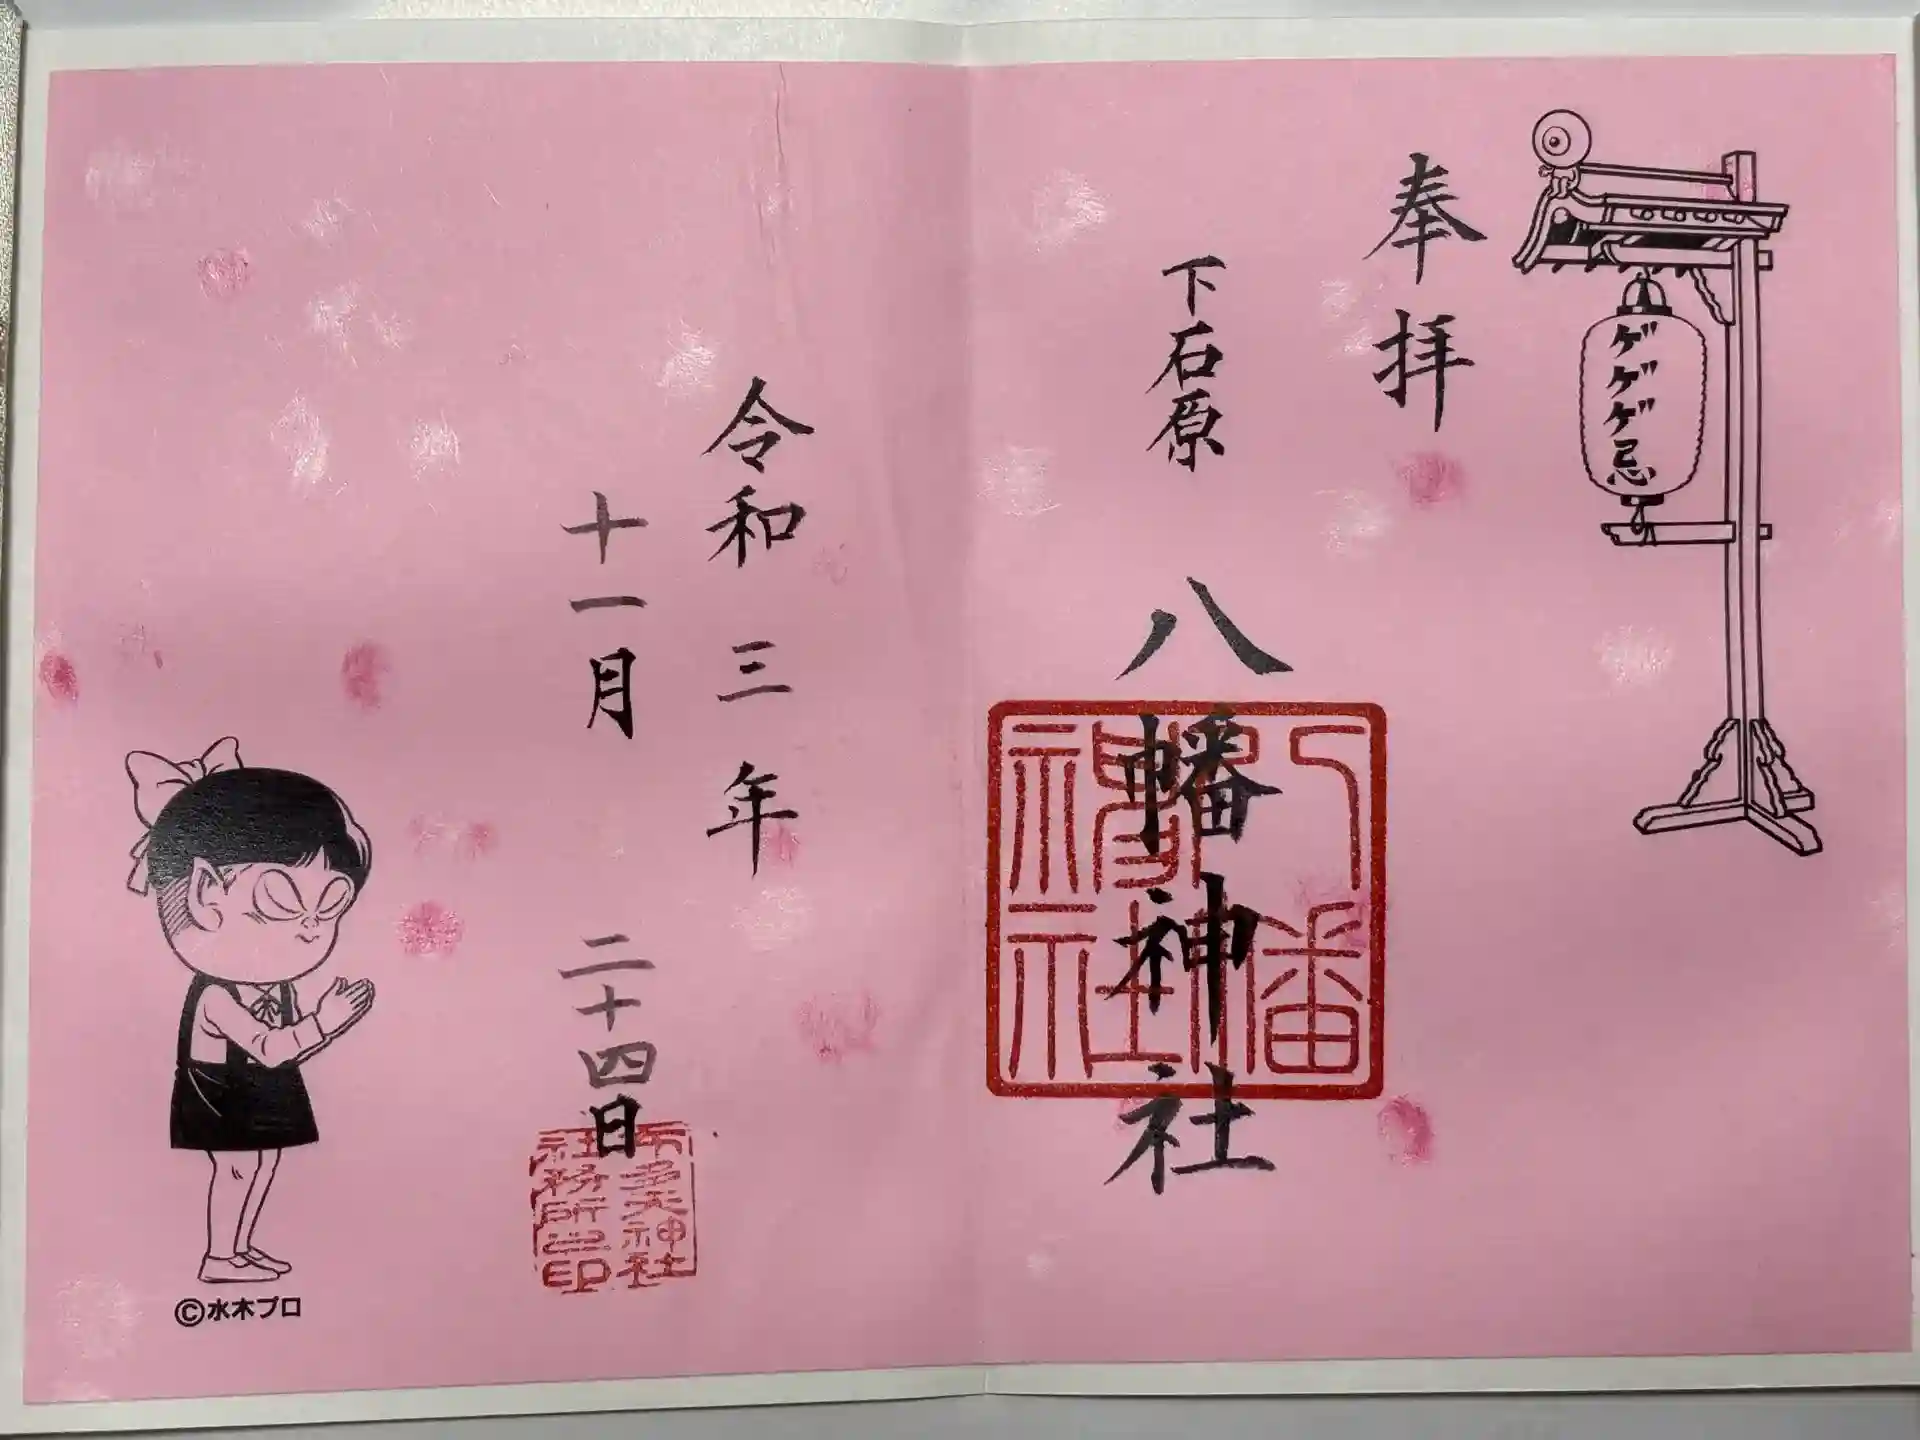 ゲゲゲ忌
奉拝
下石原 八幡神社
八幡
神社
令和三年
十一月 二十四日
布多天神社
社務所之印
©水木プロ